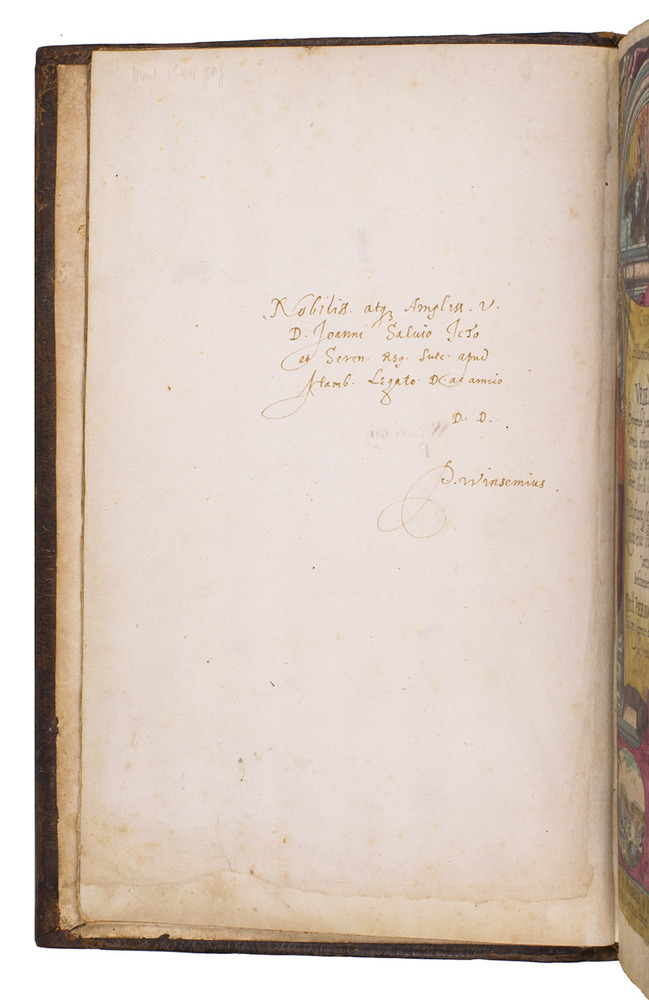 Nobiliss. atq3 Ampliss. V.
D. Joanni Salvio JCto
et Seren. Reg. Suec. apud
Hamb. Legato D. ac amico
D. D.
P. Winsemius.